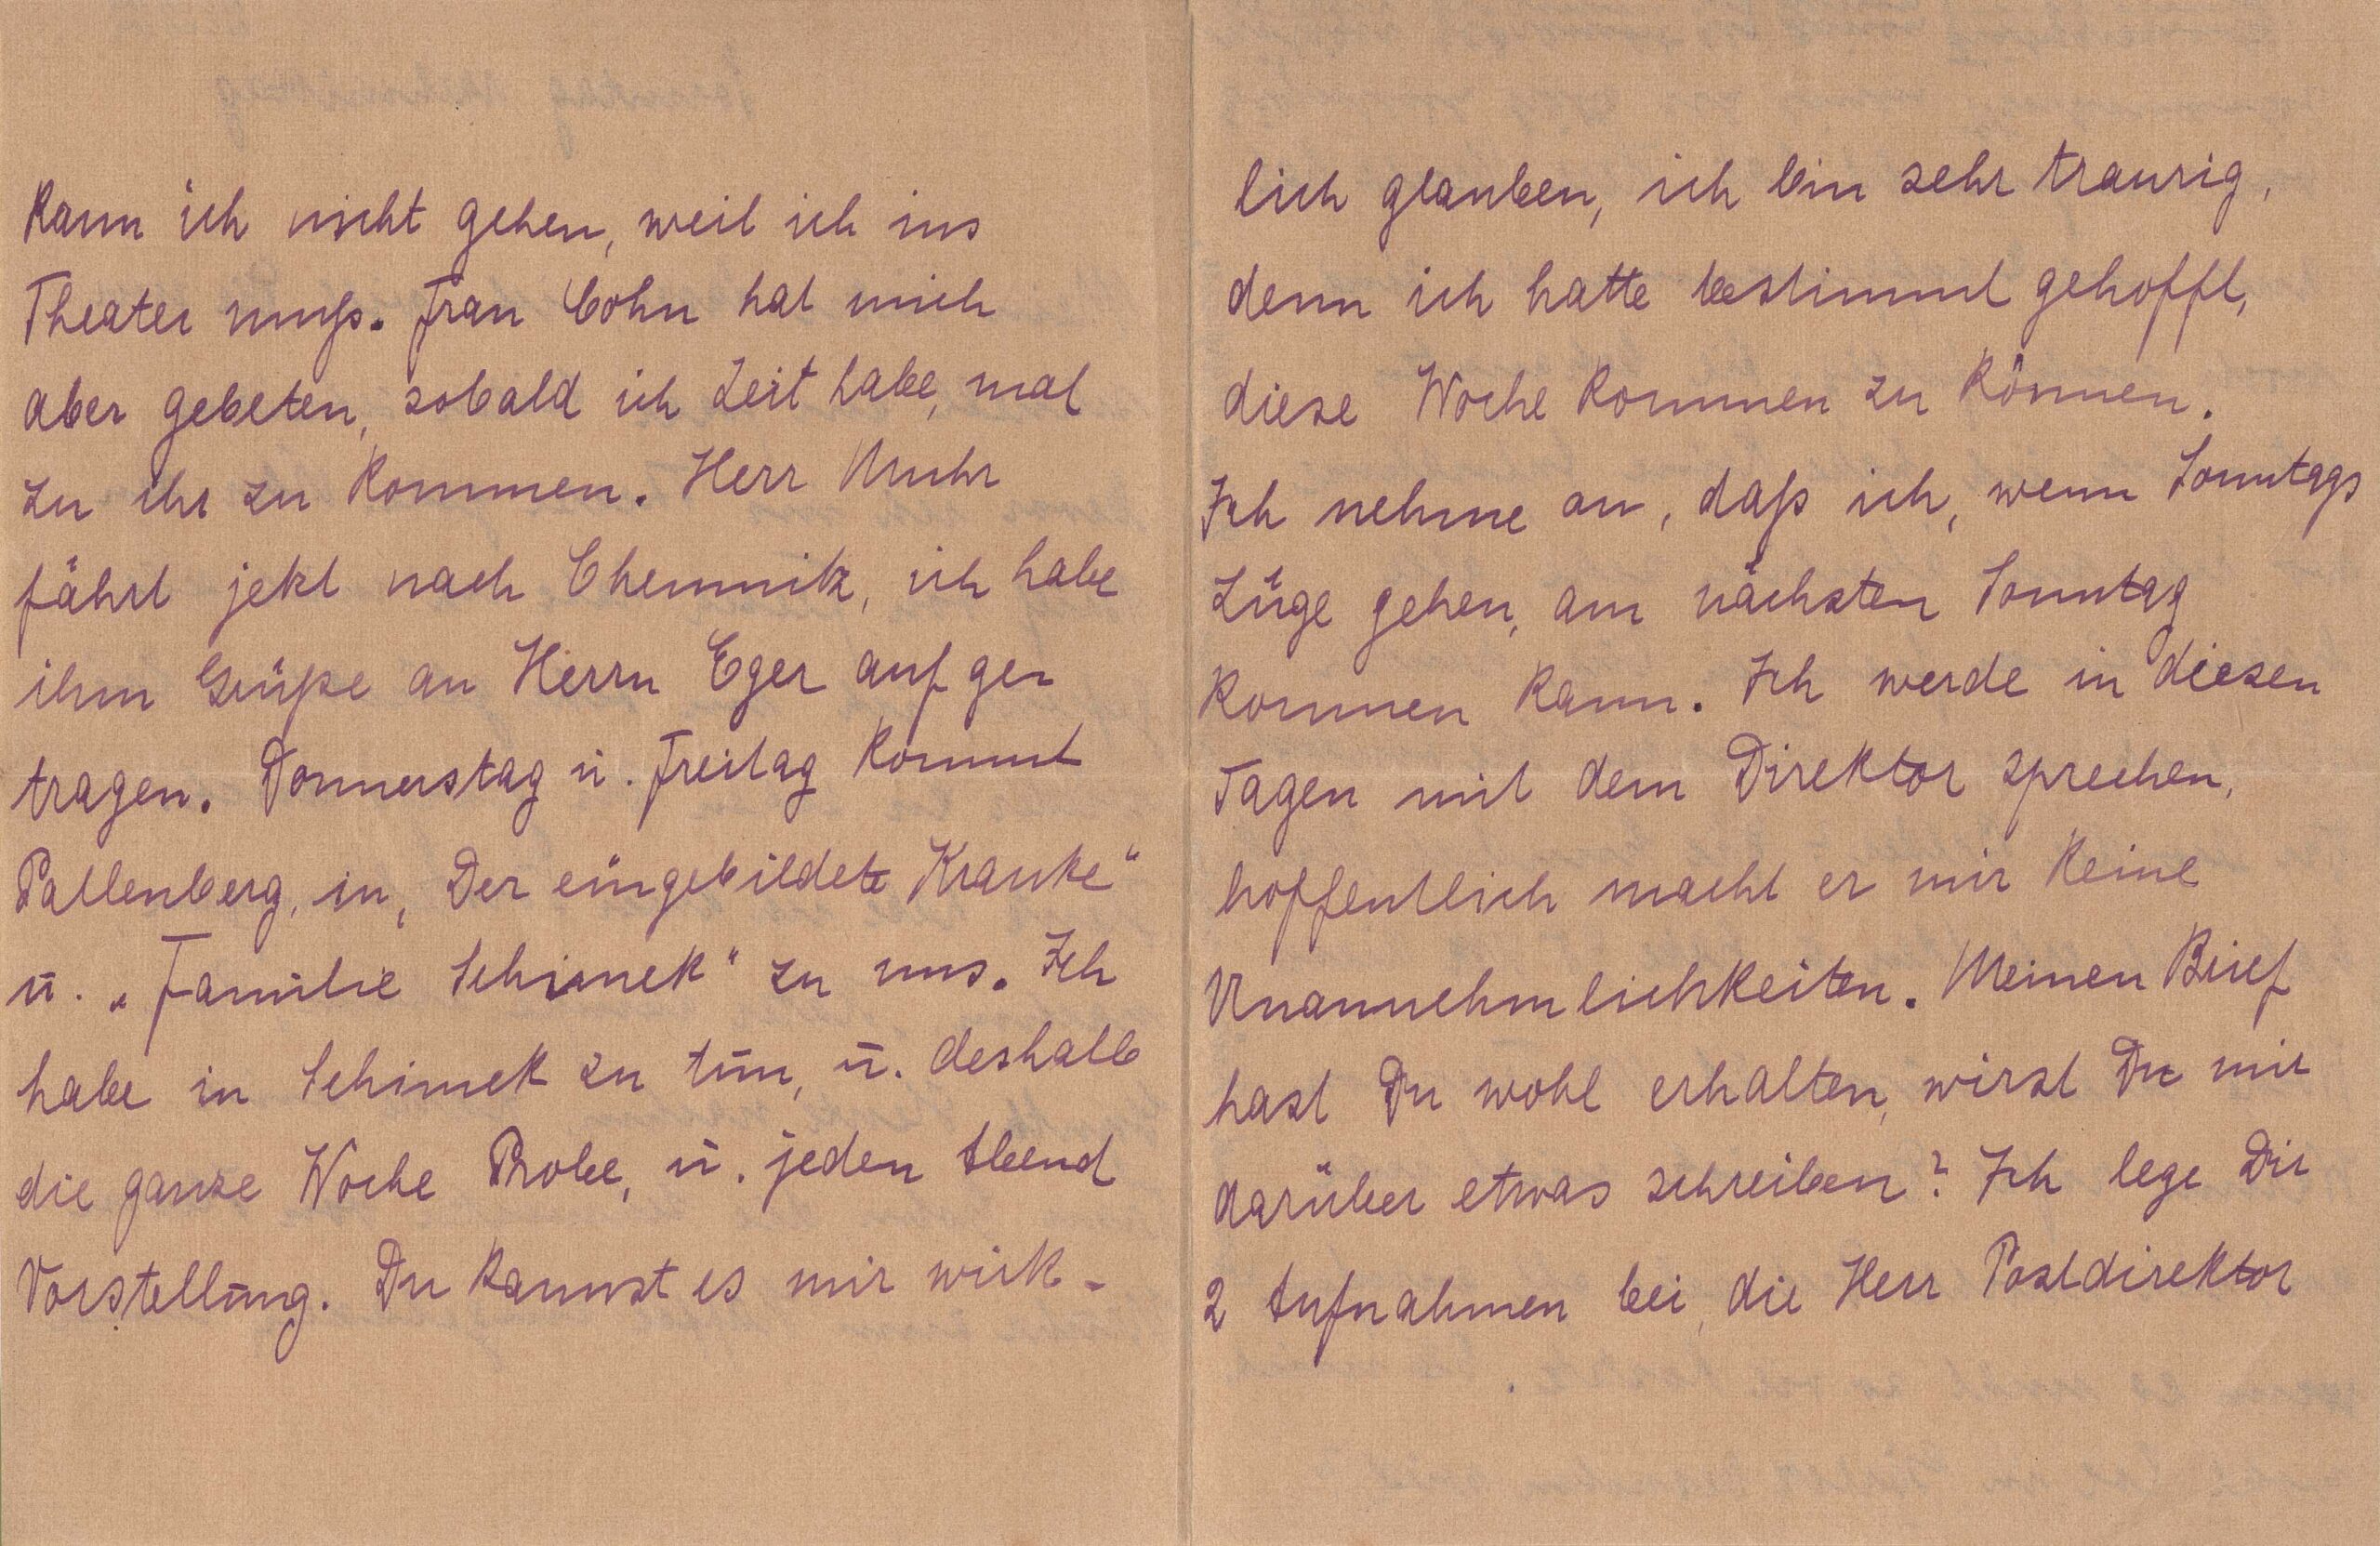 kann ich nicht gehen, weil ich ins
Theater muß. Frau Cohn hat mich
aber gebeten, sobald ich Zeit habe, mal
zu ihr zu kommen. Herr Muhr
fährt jetzt nach Chemnitz, ich habe
ihm Grüße an Herrn Eger aufge-
tragen. Donnerstag u. Freitag kommt
Pallenberg, in, Der eingebildete Kranke"
u. „Familie Schimek" zu uns. Ich
habe in Schimek zu tun, u. deshalb
die ganze Woche Probe, u. jeden Abend
Vorstellung. Du kannst es mir wirk-
lich glauben, ich bin sehr traurig,
denn ich hatte bestimmt gehofft,
diese Woche kommen zu können.
Ich nehme an, daß ich, wenn Sonntags
Züge gehen, am nächsten Sonntag
kommen kann. Ich werde in diesen
Tagen mit dem Direktor sprechen,
hoffentlich macht er mir keine
Unannehmlichkeiten. Meinen Brief
hast Du wohl erhalten, wirst Du mir
darüber etwas schreiben? Ich lege Dir
2 Aufnahmen bei, die Herr Postdirektor